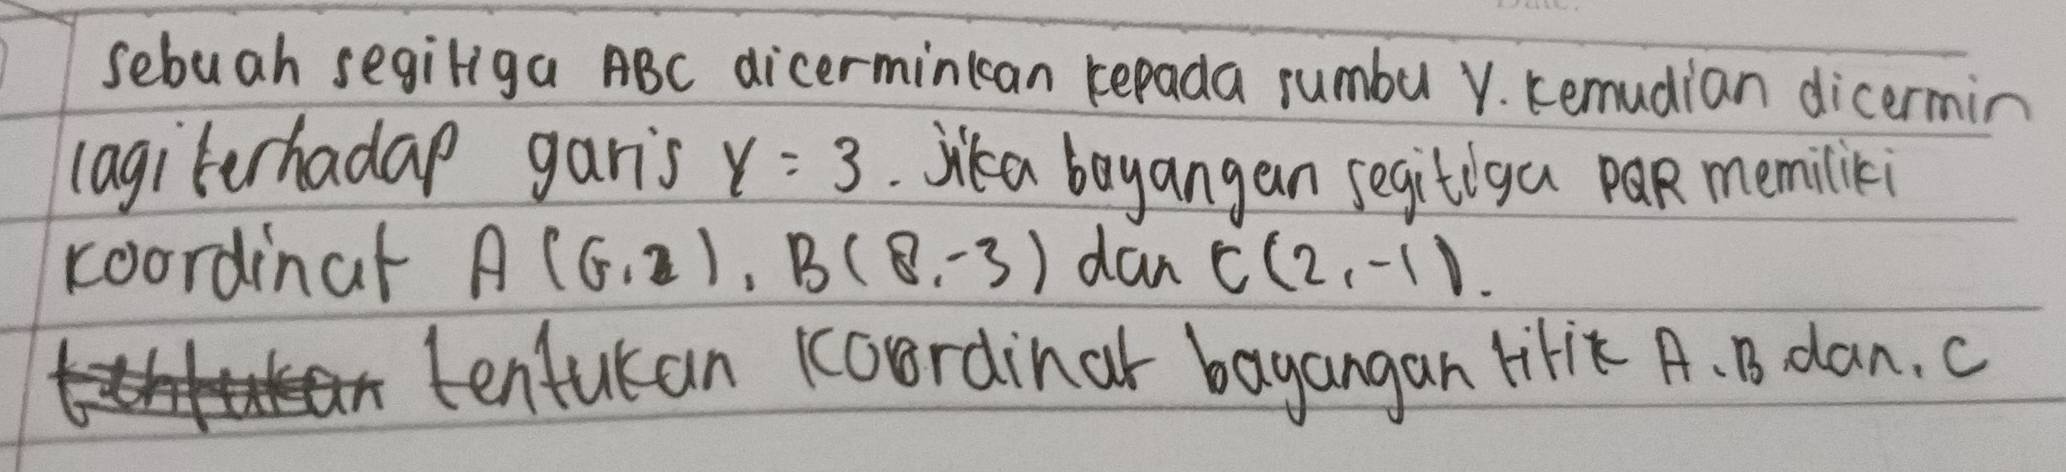 sebuah segitiga ABC dicerminkan kepada sumbu y. kemudian dicermin
lagi terhadap garis y = 3. jika bayangan segitiga PQR memiliki
koordinat A (6,2), B (8,-3) dan C (2,-1).
tentukan koordinat bayangan titik A, B, dan, C